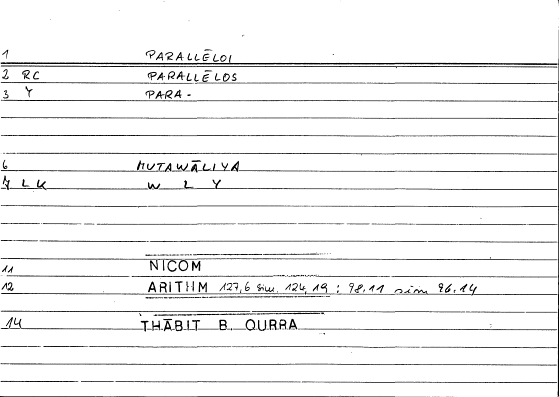 1 PARALLĒLOI
2 RC PARALLĒLOS
3 Y PARA-
6 MUTAWĀLIYA
7 L K W L Y
11 NICOM
12 ARITHM 127,6 sim. 124,19; 98,11 sim 96,14
14 THĀBIT B. QURRA